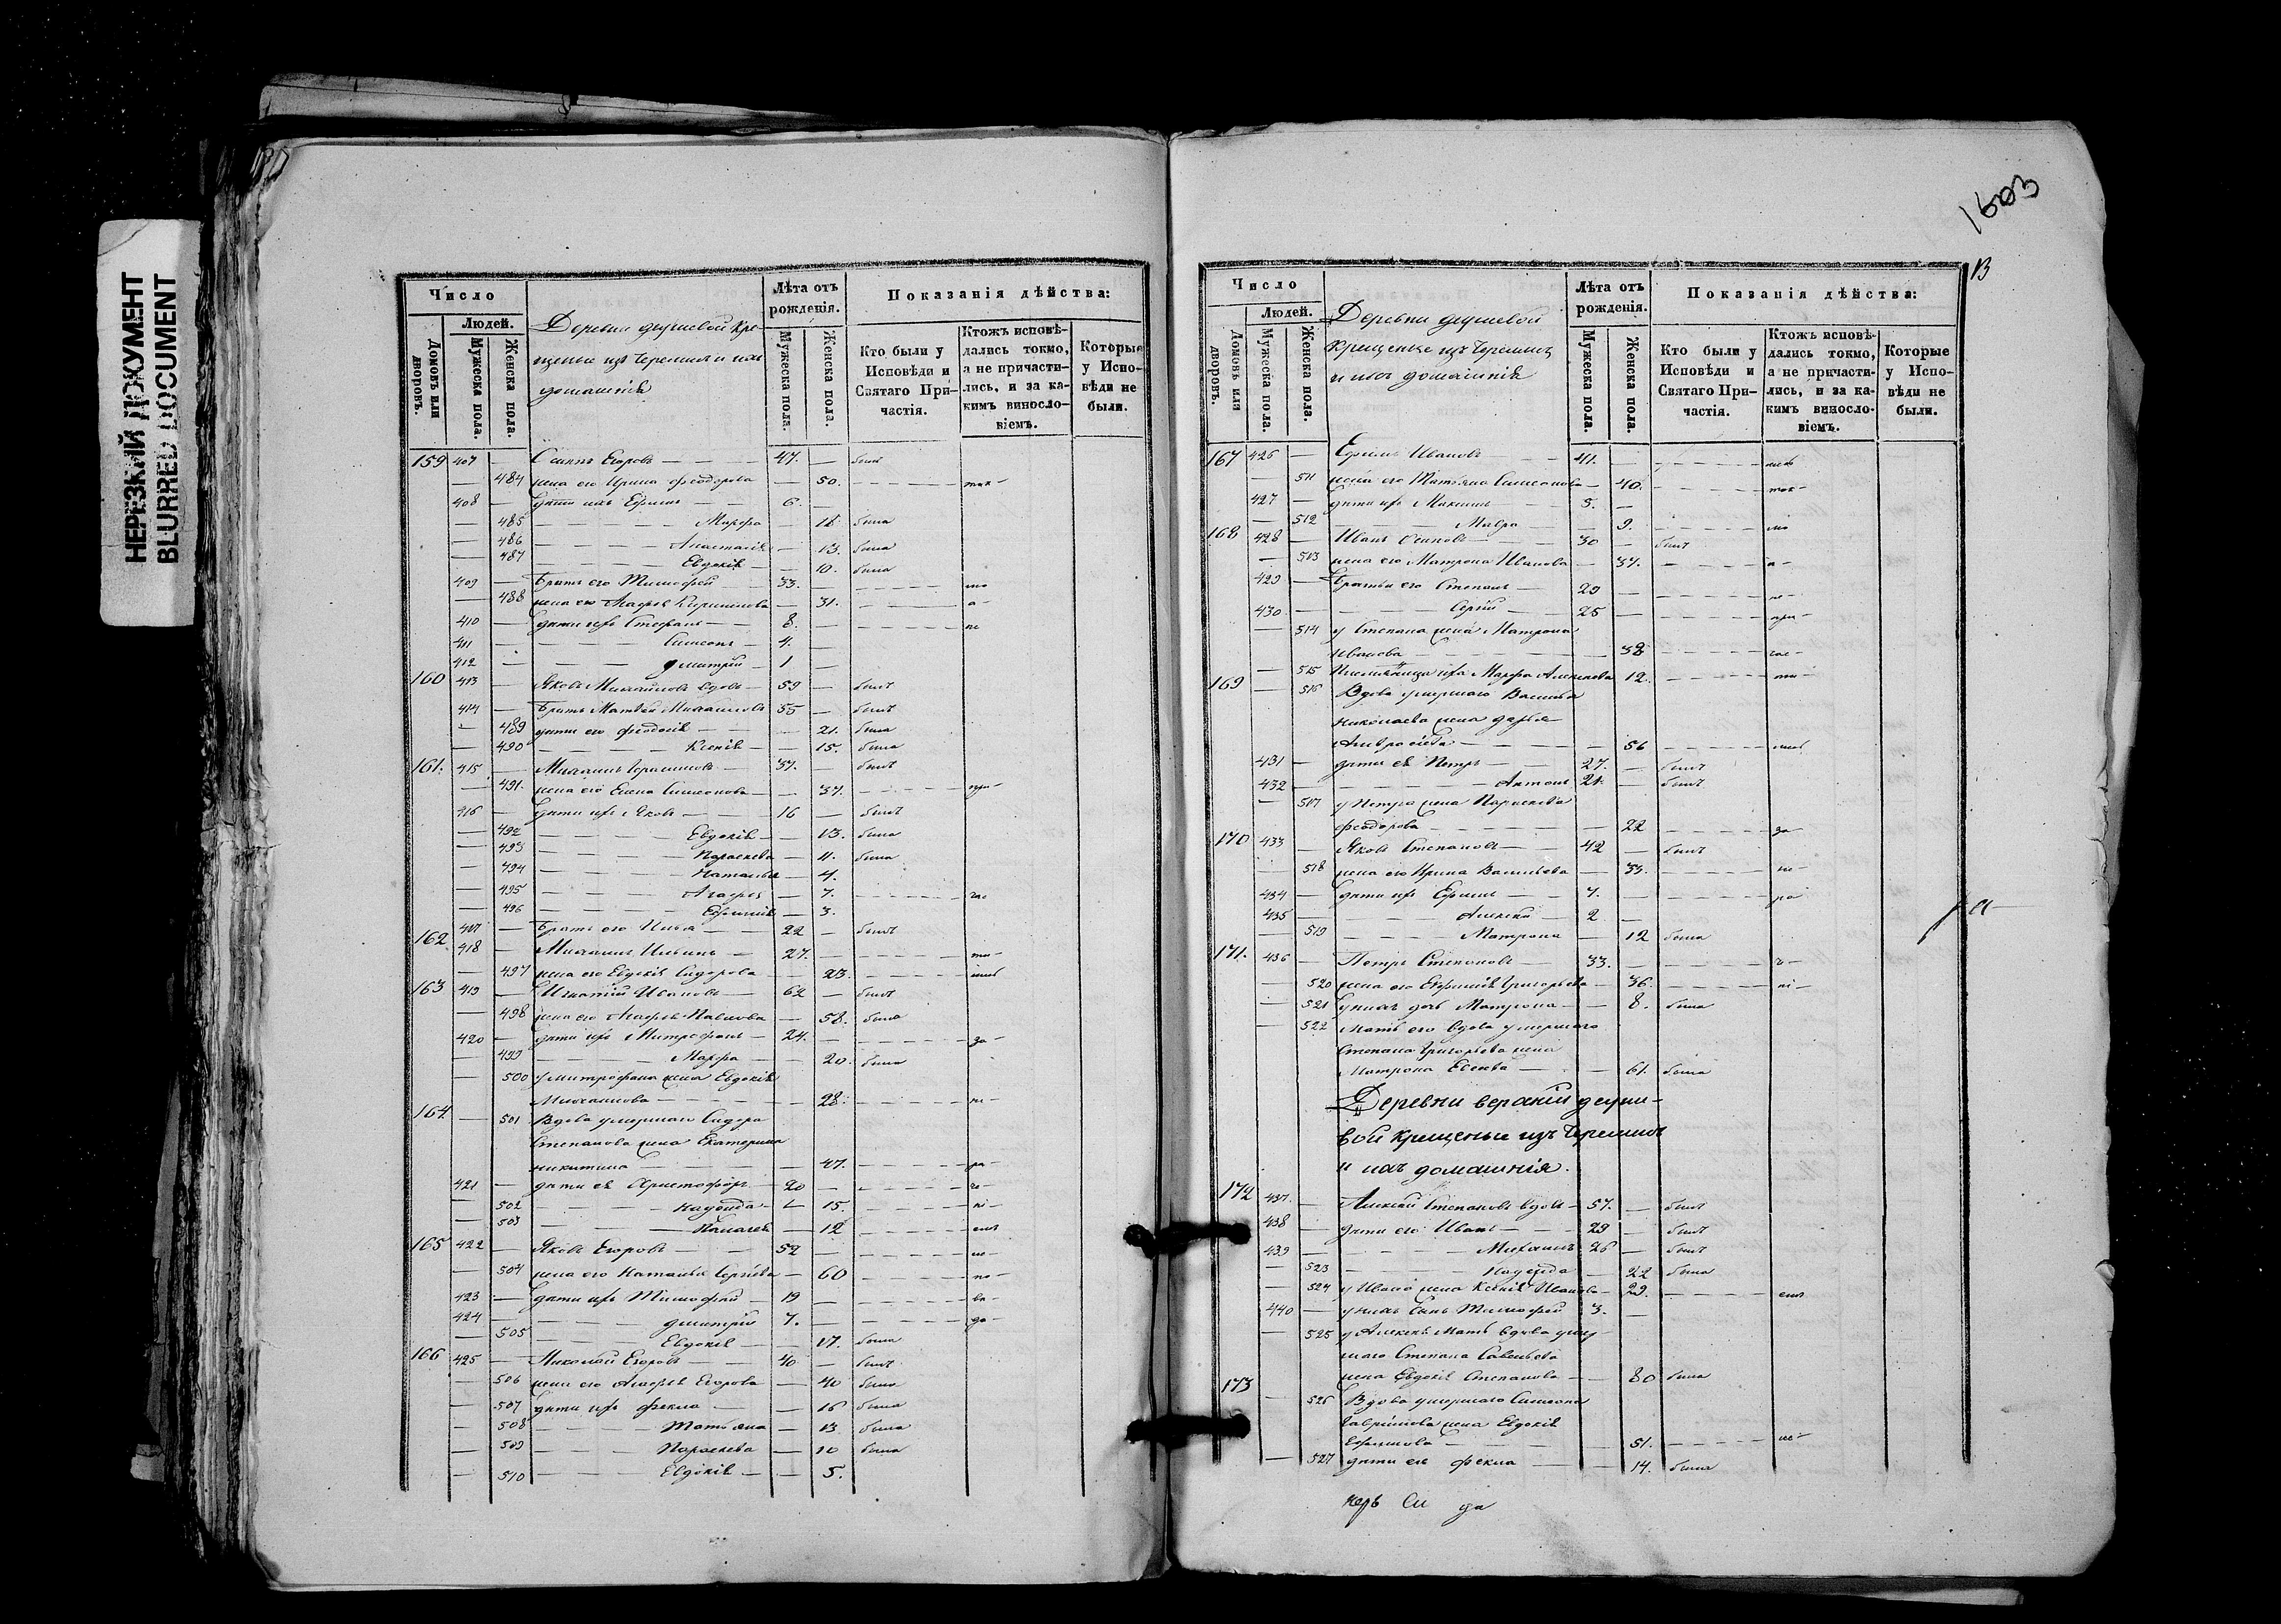 НЕРЕЗКИЙ ДОКУМЕНТ
BLURRED DOCUMENT
Число
Людей.
Домовъ или дворовъ.
Мужеска пола.
Женска пола.
Деревни душевой Кре-
щеные изъ Черемисъ и ихъ
домашнія
Лѣта отъ рожденія.
Мужеска пола.
Женска пола.
Показанія дѣйства:
Кто были у Исповѣди и Святаго При-частія.
Ктожъ исповѣ-дались токмо, а не причасти-лись, и за ка-кимъ винослo-віемъ.
Которые у Испо-вѣди не были.
159 407 — Осипъ Егоровъ — 47. — былъ
— 484 жена его Ирина Феодорова — 50.
408 — дѣти ихъ Ефимъ — 6. —
— 485 Марфа — 18. была
— 486 Анастасія — 13. была
— 487 Евдокія — 10. была
409 — Братъ его Тимофей — 33. —
— 488 жена его Агафья — 31.
410 — дѣти ихъ Стефанъ — 8. —
411 — Симеонъ — 4. —
412 — Дмитрій — 1 —
160 413 — Яковъ Михайловъ вдовъ — 59 — былъ
414 — Братъ Матвей Михайловъ 55 — былъ
— 489 дѣти его Феодосія — 21. была
— 490 Ксенія — 15. была
161. 415 — Михаилъ Герасимовъ — 37. — былъ
— 491. жена его Елена Симеонова — 37.
416 — дѣти ихъ Яковъ — 16 — былъ
— 492 Евдокія — 13. была
— 493 Параскева — 11. была
— 494 Наталья — 4.
— 495 Агафья — 7.
— 496 Ефимія — 3.
417 — Братъ его Илья — 22 — былъ
162 418 — Михаилъ Ильинъ — 27. —
— 497 жена его Евдокія Сидорова — 23.
163 419 — Игнатій Ивановъ — 62 — былъ
— 498 жена его Агафья Павлова — 58. была
420 — дѣти ихъ Митрофанъ — 24. —
— 499 Марфа — 20. была
— 500 у Митрофана жена Евдокія
Михайлова — 28.
164 — 501 Вдова умершаго Сидора
Степанова жена Екатерина
Никитина — 47.
421 — дѣти ея Христофоръ — 20 —
— 502 Надежда — 15.
— 503 Пелагея — 12
165 422 — Яковъ Егоровъ — 52 —
— 504 жена его Наталья Сергѣева — 60
423 — дѣти ихъ Тимофей — 19 —
424 — Дмитрій 7. —
— 505 Евдокія — 17. была
166 425 — Николай Егоровъ — 40 — былъ
— 506 жена его Агафья Егорова — 40 была
— 507 дѣти ихъ Фекла — 16 была
— 508 Татьяна — 13 была
— 509 Параскева — 10 была
— 510 Евдокія — 5.
1603
13
Число
Людей.
Домовъ или дворовъ.
Мужеска пола.
Женска пола.
Деревни душевой
Крещеные изъ Черемисъ
и ихъ домашнія
Лѣта отъ рожденія.
Мужеска пола.
Женска пола.
Показанія дѣйства:
Кто были у Исповѣди и Святаго При-частія.
Ктожъ исповѣ-дались токмо, а не причасти-лись, и за ка-кимъ винослo-віемъ.
Которые у Испо-вѣди не были.
167 426 — Ефимъ Ивановъ — 41. —
— 511 жена его Татьяна Симеонова — 40.
427 — дѣти ихъ Максимъ — 5. —
— 512 Мавра — 9.
168 428 — Иванъ Осиповъ — 30 — былъ
— 513 жена его Матрона Иванова — 37.
429 — Братья его Степанъ — 29 —
430 — Сергій — 25 —
— 514 у Степана жена Матрона
Иванова — 38
— 515 Племянница ихъ Марфа Алексеева 12.
169 — 516 Вдова умершаго Василья
Николаева жена Дарья
Амвросіева — 56
431 — дѣти ея Петръ — 27. — былъ
432 — Антонъ 21. — былъ
— 517 у Петра жена Параскева
Феодорова — 22
170 433 — Яковъ Степановъ — 42 — былъ
— 518 жена его Ирина Васильева — 33.
434 — дѣти ихъ Ефимъ — 7. —
435 — Алексей — 2 —
— 519 Матрона — 12 была
171. 436 — Петръ Степановъ — 33. —
— 520 жена его Евфимія Григорьева — 36.
— 521 у нихъ дочь Матрона — 8. была
— 522 Мать его вдова умершаго
Степана Григорьева жена
Матрона — 61. была
Деревни верхній душе-
вой Крещеные изъ Черемисъ
и ихъ домашнія.
172 437. — Алексей Степановъ вдовъ — 57. — былъ
438 — дѣти его Иванъ — 29 — былъ
439 — Михаилъ 26 — былъ
— 523 Надежда — 22 была
— 524 у Ивана жена Ксенія Иванова — 29.
440 — у нихъ сынъ Тимофей 3. —
— 525 у Алексея Мать вдова умер-
шаго Степана Савельева
жена Евдокія Степанова — 80 была
173 — 526 Вдова умершаго Симеона
Гаврилова жена Евдокія
Ефимова — 51.
— 527 дѣти ея Фекла — 14. была